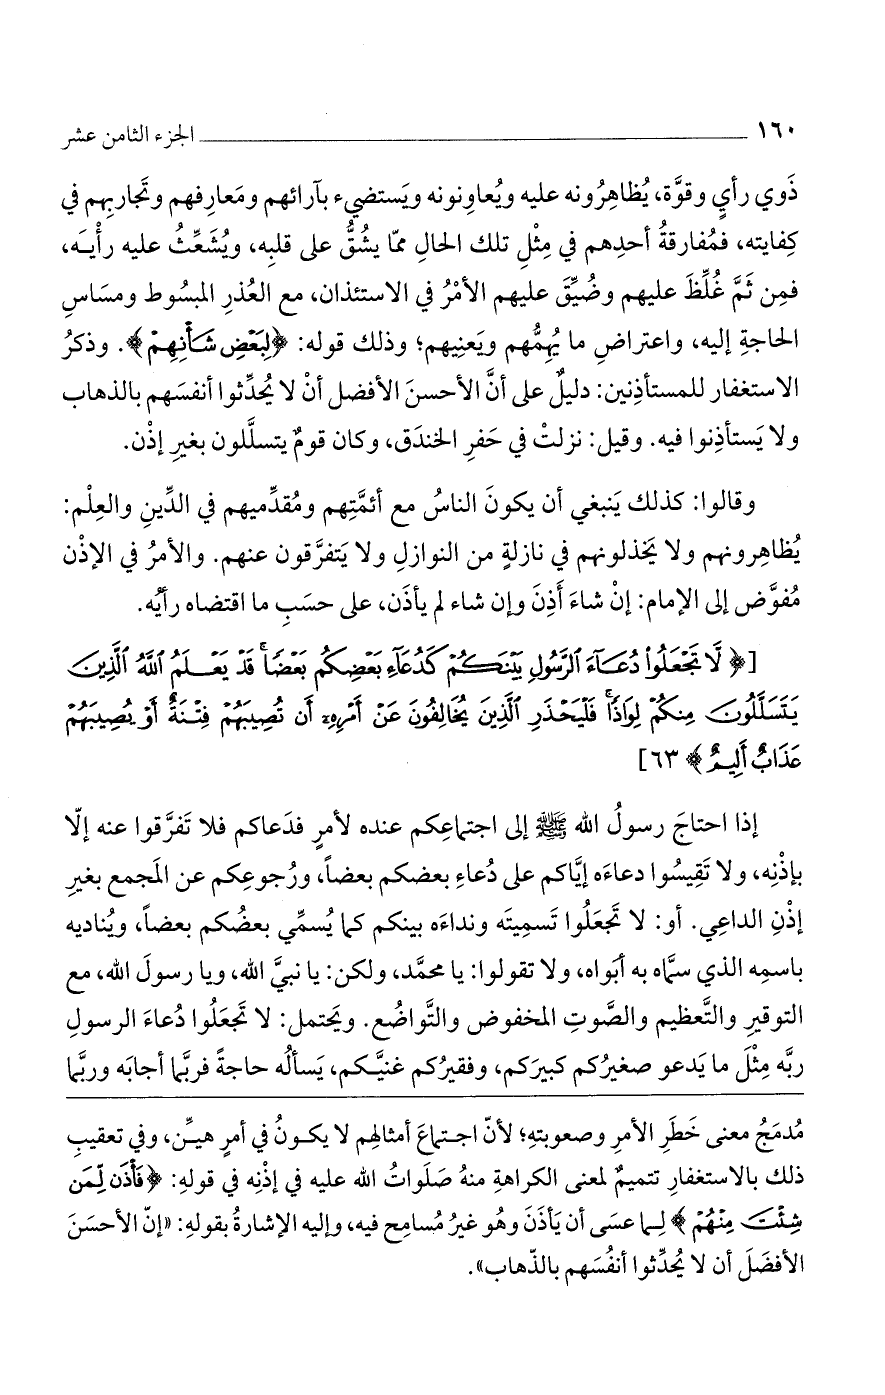 ١٦٠ ـــــــ الجزء الثامن عشر
ذَوي رأيٍ وقوَّة، يُظاهِرُونه عليه ويُعاوِنونه ويَستضيء بآرائهم ومَعارِفهم وتَجاربِهم في
كِفايته، فمُفارقةُ أحدِهم في مِثْلِ تلك الحالِ ممّا يشُقُّ على قلبِه، ويُشَعِّثُ عليه رأيَـه،
فمِن ثَمَّ غُلِّظَ عليهم وضُيِّقَ عليهم الأمْرُ في الاستئذان، مع العُذرِ المبسُوط ومسَاسِ
الحاجةِ إليه، واعتراضِ ما يُهِمُّهم ويَعنِيهم؛ وذلك قوله: ﴿لِبَعْضِ شَأْنِهِمْ﴾. وذكرُ
الاستغفار للمستأذِنين: دليلٌ على أنَّ الأحسنَ الأفضل أنْ لا يُحدِّثوا أنفسَهم بالذهاب
ولا يَستأذِنوا فيه. وقيل: نزلتْ في حَفرِ الخندَق، وكان قومٌ يتسلَّلون بغيرِ إذْن.
وقالوا: كذلك يَنبغي أن يكونَ الناسُ مع أئمَّتِهم ومُقدِّميهم في الدِّينِ والعِلْم:
يُظاهِرونهم ولا يَخذلونهم في نازلةٍ من النوازلِ ولا يَتفرَّقون عنهم. والأمرُ في الإذْن
مُفوَّض إلى الإمام: إنْ شاءَ أَذِنَ وإن شاء لم يأذَن، على حسَبِ ما اقتضاه رأيُه.
[﴿لَّا تَجْعَلُوا۟ دُعَآءَ ٱلرَّسُولِ بَيْنَكُمْ كَدُعَآءِ بَعْضِكُم بَعْضًا ۚ قَدْ يَعْلَمُ ٱللَّهُ ٱلَّذِينَ
يَتَسَلَّلُونَ مِنكُمْ لِوَاذًا ۚ فَلْيَحْذَرِ ٱلَّذِينَ يُخَالِفُونَ عَنْ أَمْرِهِۦٓ أَن تُصِيبَهُمْ فِتْنَةٌ أَوْ يُصِيبَهُمْ
عَذَابٌ أَلِيمٌ﴾ ٦٣]
إذا احتاجَ رسولُ الله ﷺ إلى اجتماعِكم عنده لأمرٍ فدَعاكم فلا تَفرَّقوا عنه إلّا
بإذْنِه، ولا تَقِيسُوا دعاءَه إيَّاكم على دُعاءِ بعضكم بعضاً، ورُجوعِكم عن المَجمع بغيرِ
إذْنِ الداعِي. أو: لا تَجعَلُوا تَسمِيتَه ونداءَه بينكم كما يُسمِّي بعضُكم بعضاً، ويُناديه
باسمِه الذي سمَّاه به أبَواه، ولا تقولوا: يا محمَّد، ولكن: يا نبيَّ الله، ويا رسولَ الله، مع
التوقيرِ والتَّعظيم والصَّوتِ المخفوض والتَّواضُع. ويَحتمل: لا تَجعَلُوا دُعاءَ الرسولِ
ربَّه مِثْلَ ما يَدعو صغيرُكم كبيرَكم، وفقيرُكم غنيَّـكم، يَسألُه حاجةً فربَّما أجابَه وربَّما
مُدمَجُ معنى خَطَرِ الأمرِ وصعوبتهِ؛ لأنّ اجـتماعَ أمثالهِم لا يكـونُ في أمرٍ هيـِّن، وفي تعقيبِ
ذلك بالاستغفارِ تتميمٌ لمعنى الكراهةِ منهُ صَلَواتُ الله عليه في إذْنِه في قولهِ: ﴿فَأْذَن لِّمَن
شِئْتَ مِنْهُمْ﴾ لِـما عسَى أن يَأذَنَ وهُو غيرُ مُسامِحٍ فيه، وإليه الإشارةُ بقولهِ: «إنّ الأحسَنَ
الأفضَلَ أن لا يُحدِّثوا أنفُسَهم بالذّهاب».